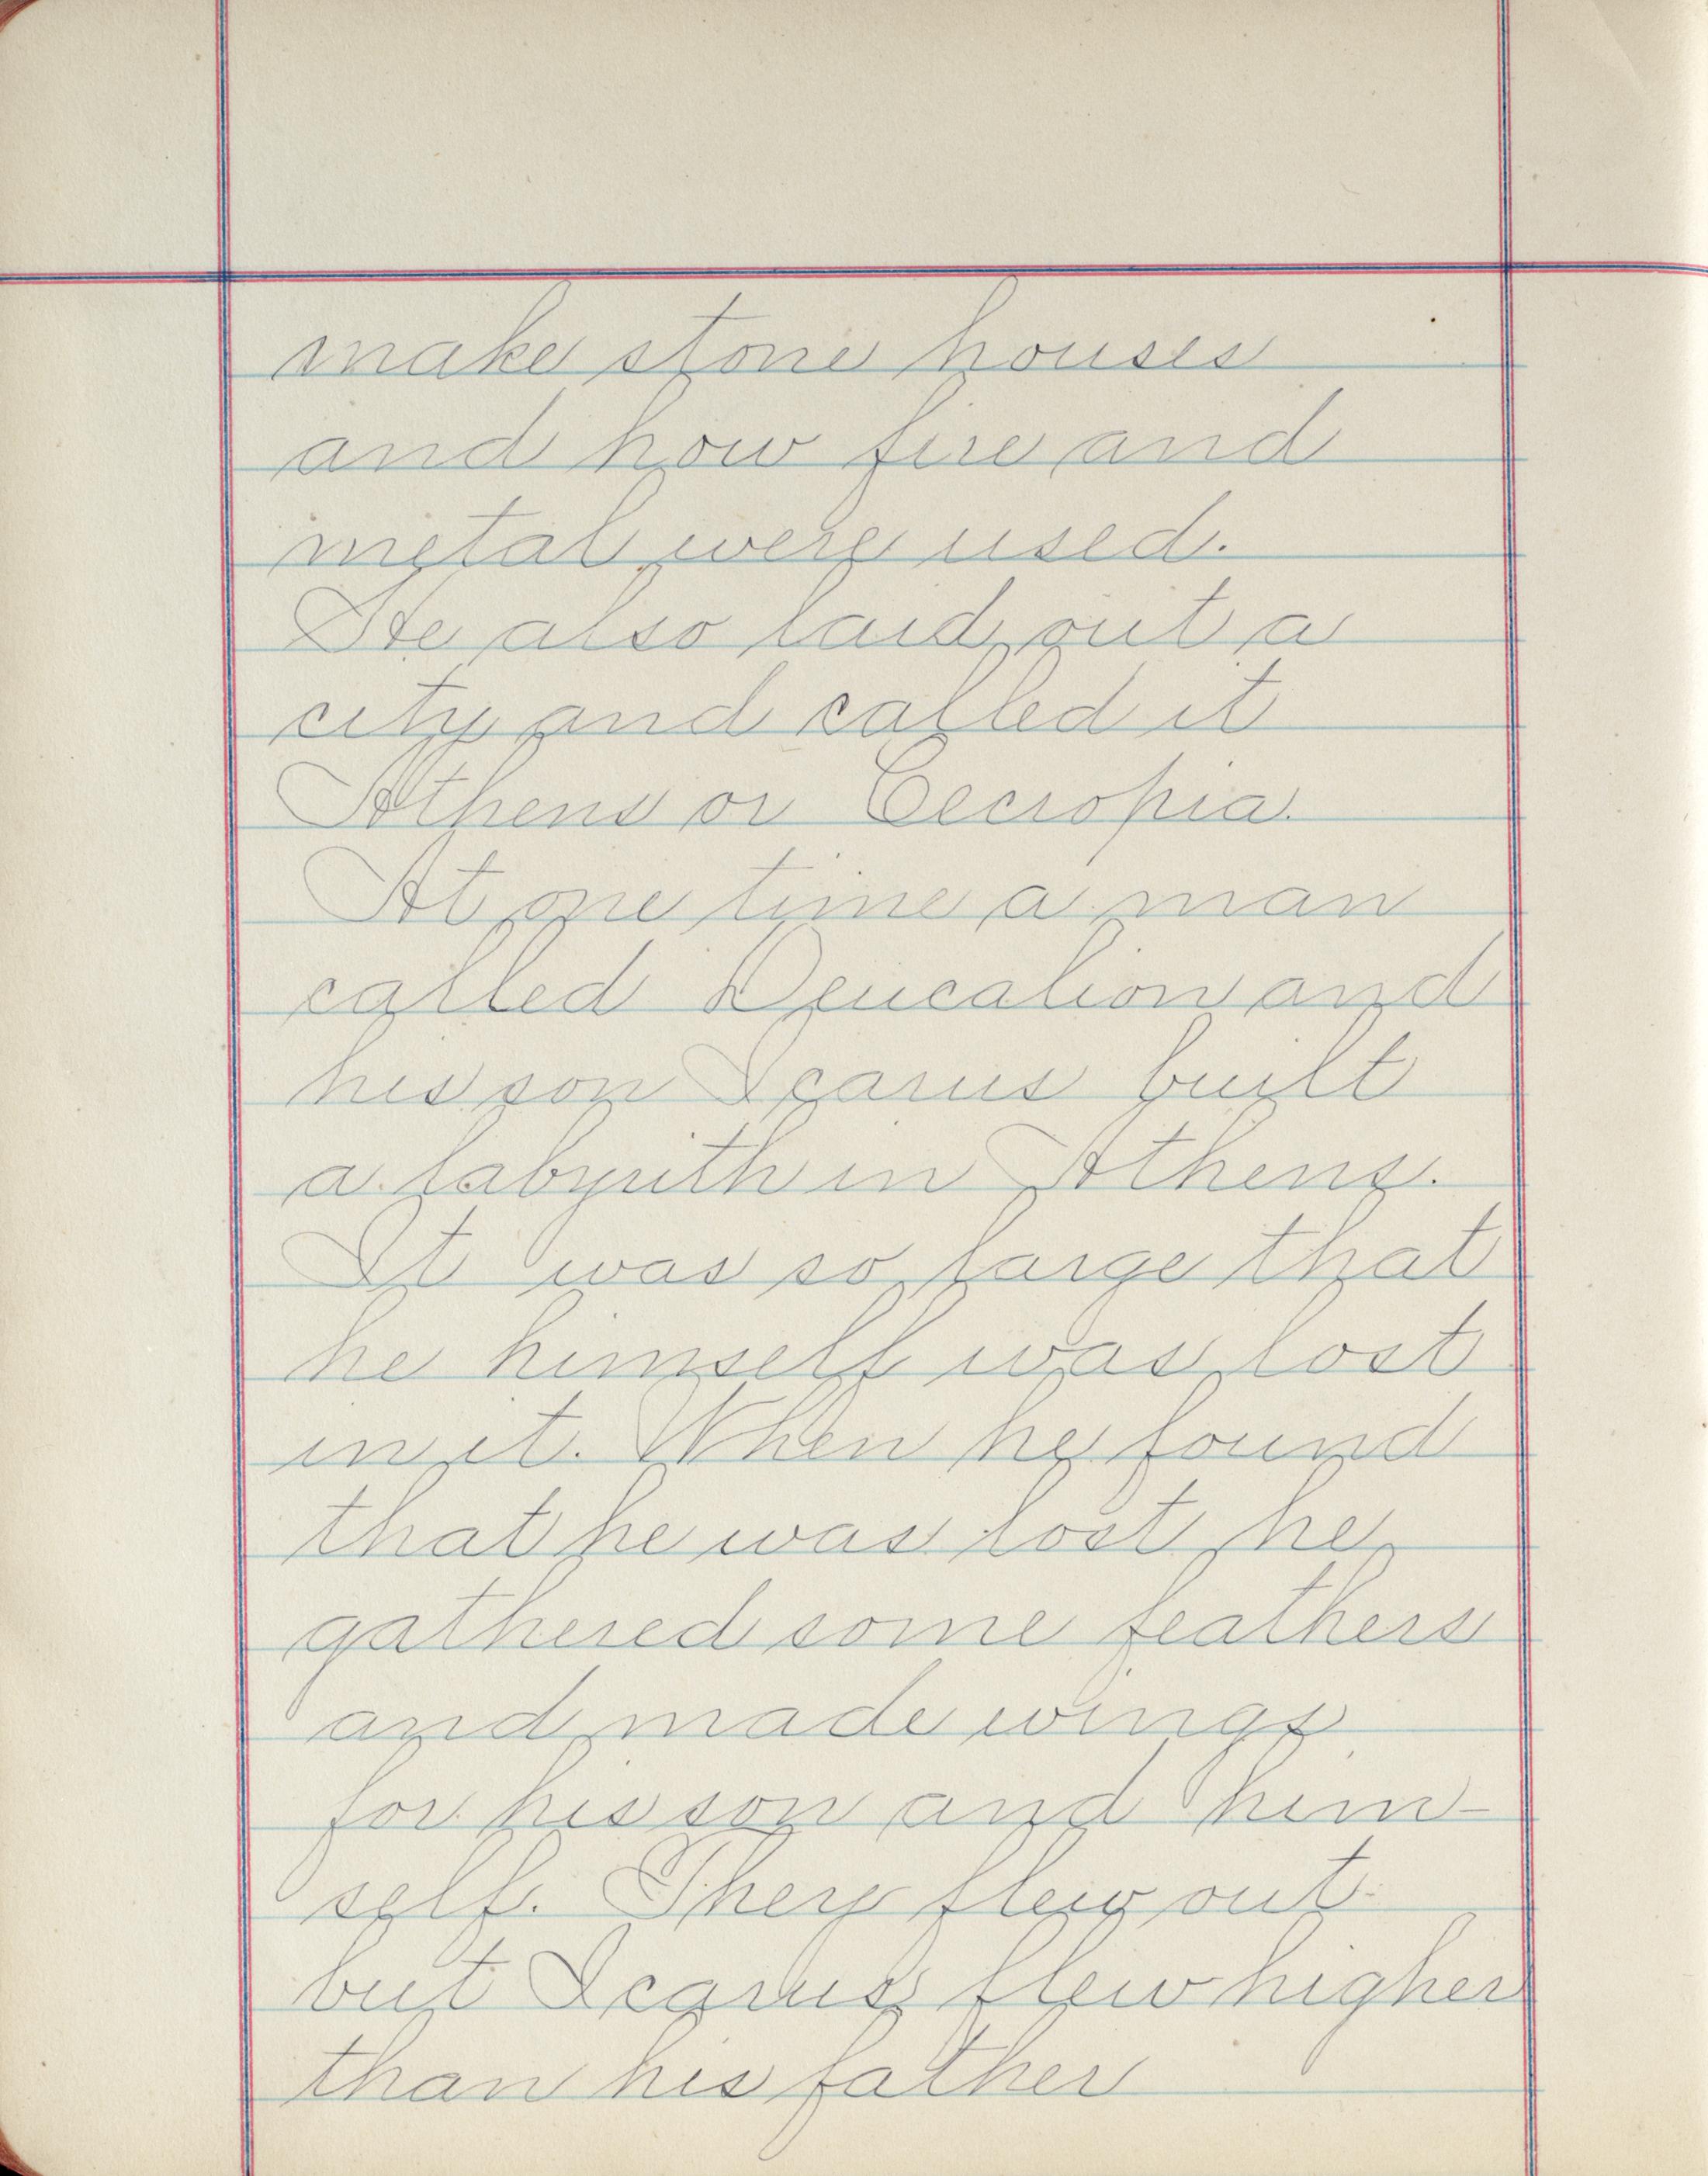 make stone houses
and how fire and
metal were used.
He also laid out a
city and called it
Athens or Cecropia.
At one time a man
called Deucalion and
his son Icarus built
a labyrith in Athens.
It was so large that
he himself was lost
in it. When he found
that he was lost he
gathered some feathers
and made wings
for his son and him-
self. They flew out
but Icarus flew higher
than his father